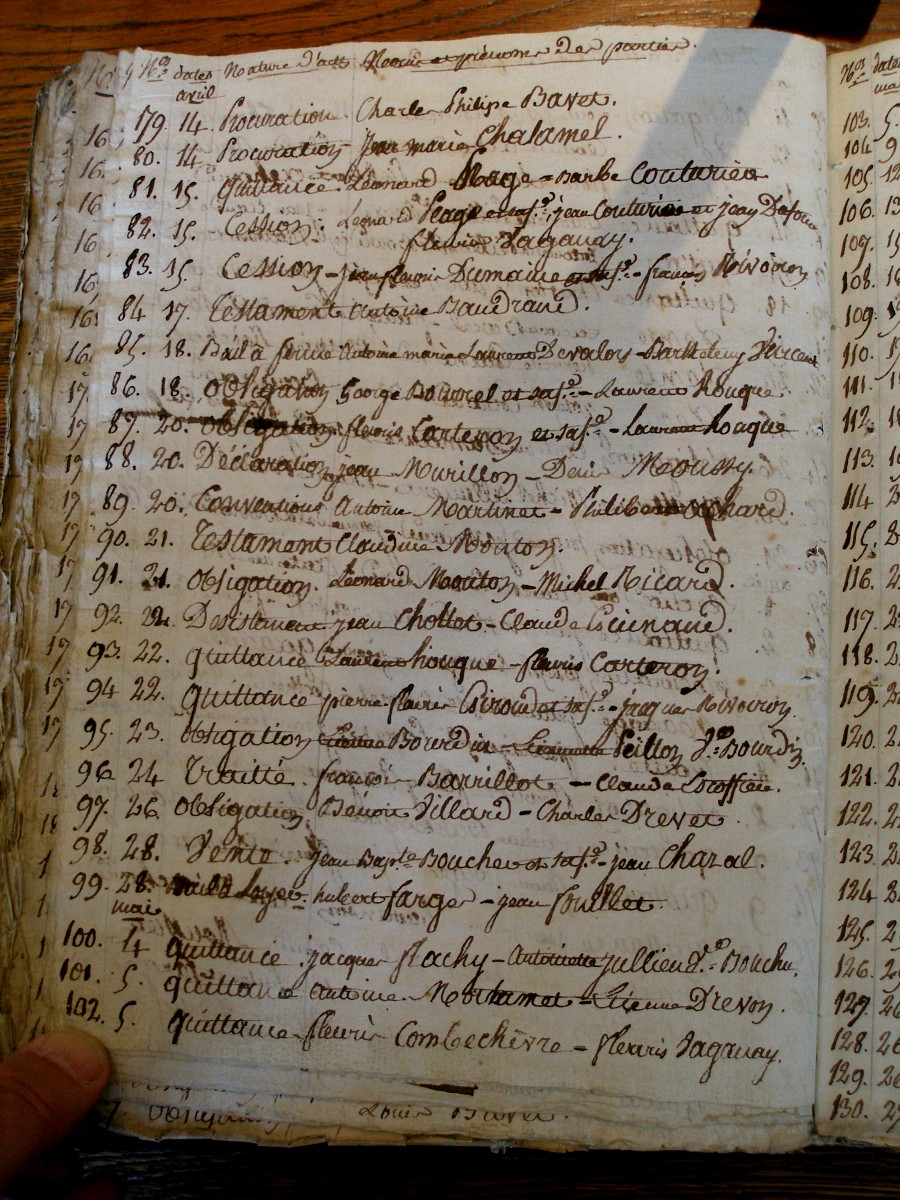 Nos dates Nature d'acte Noms et prénoms des parties.
avril
179. 14. Procuration Charle Philipe Bavet.
16. 80. 14. Procuration Jean marie Chalamel.
16. 81. 15. Quittance Léonard Peage - Barbe Couturier
16 82. 15. Cession. Léonard Peage et sa fe. jean Couturier et jean
fleurie Pagauay.
16 83. 15. Cession - jean fleurie Dumaine et sa fe. - françois Rivoiron
16. 84 17. Testament Antoine Baudrand.
16. 85. 18. Bail à ferme Antoine marie Laurent Devaloy - Barthelemy Vincent
17 86. 18. Obligation George Bourrel et sa fe. - Laurent Houque
17 87. 20. Obligation fleurie Carteron et sa fe. - Laurent houque
17 88. 20. Déclaration jean Murillon - Denis Moussy.
17 89. 20. Conventions Antoine Martinet - Philibert
17 90. 21. Testament Claudine Mouton.
17 91. 21. Obligation. Léonard Mouton - Michel Ricard.
17 92. 22. Desistement jean Chollot - Claude
17 93. 22. quittance Laurent houque - fleuris Carteron.
17 94 22. Quittance pierre fleurie Giroud et sa fe. - jacques Rivoiron.
17 95. 23. Obligation Bourdin - Peillon Ve. Bourdin.
96 24 Traitté. françois Barrillot - Claude
18 97. 26 Obligation. Benoit Villard - Charles Drevet.
98. 28. Vente. jean Bapte Bouchet et sa fe. - jean Chazal.
99. 28. Bail à Loyer. hubert farge - jean fouillet.
mai
100. 4 quittance. jacques flachy - Antoinette jullien Ve. Bouchu.
101. 5. quittance Antoine Mortamet - Etienne Drevon.
102. 5. quittance fleuris Combechèvre - fleuris Pagauay.
Louis
Nos dates
mai
103. 5.
104 9
105. 12
106. 13
109. 15
108. 18
109.
110.
111.
112.
113.
114
115.
116. 2
117.
118. 2
119. 2
120. 2
121. 2
122. 2
123
124
125. 2
126. 2
127. 26
128. 26
129. 26
130. 2